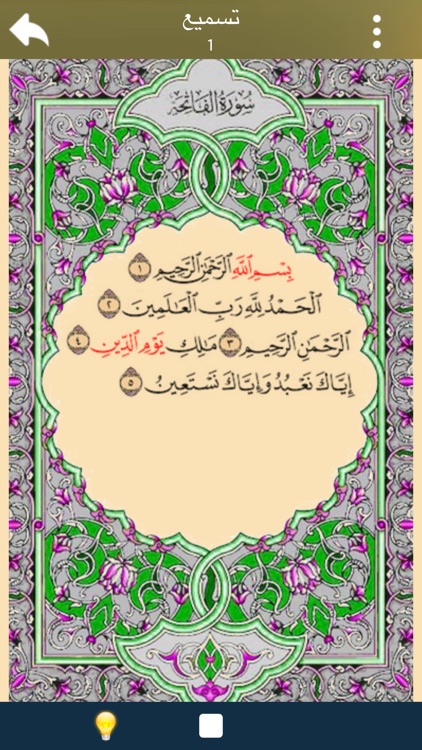 تسميع
1
سُورَةُ الفَاتِحَةِ
بِسْمِ ٱللَّهِ ٱلرَّحْمَٰنِ ٱلرَّحِيمِ ١
ٱلْحَمْدُ لِلَّهِ رَبِّ ٱلْعَٰلَمِينَ ٢
ٱلرَّحْمَٰنِ ٱلرَّحِيمِ ٣ مَٰلِكِ يَوْمِ ٱلدِّينِ ٤
إِيَّاكَ نَعْبُدُ وَإِيَّاكَ نَسْتَعِينُ ٥